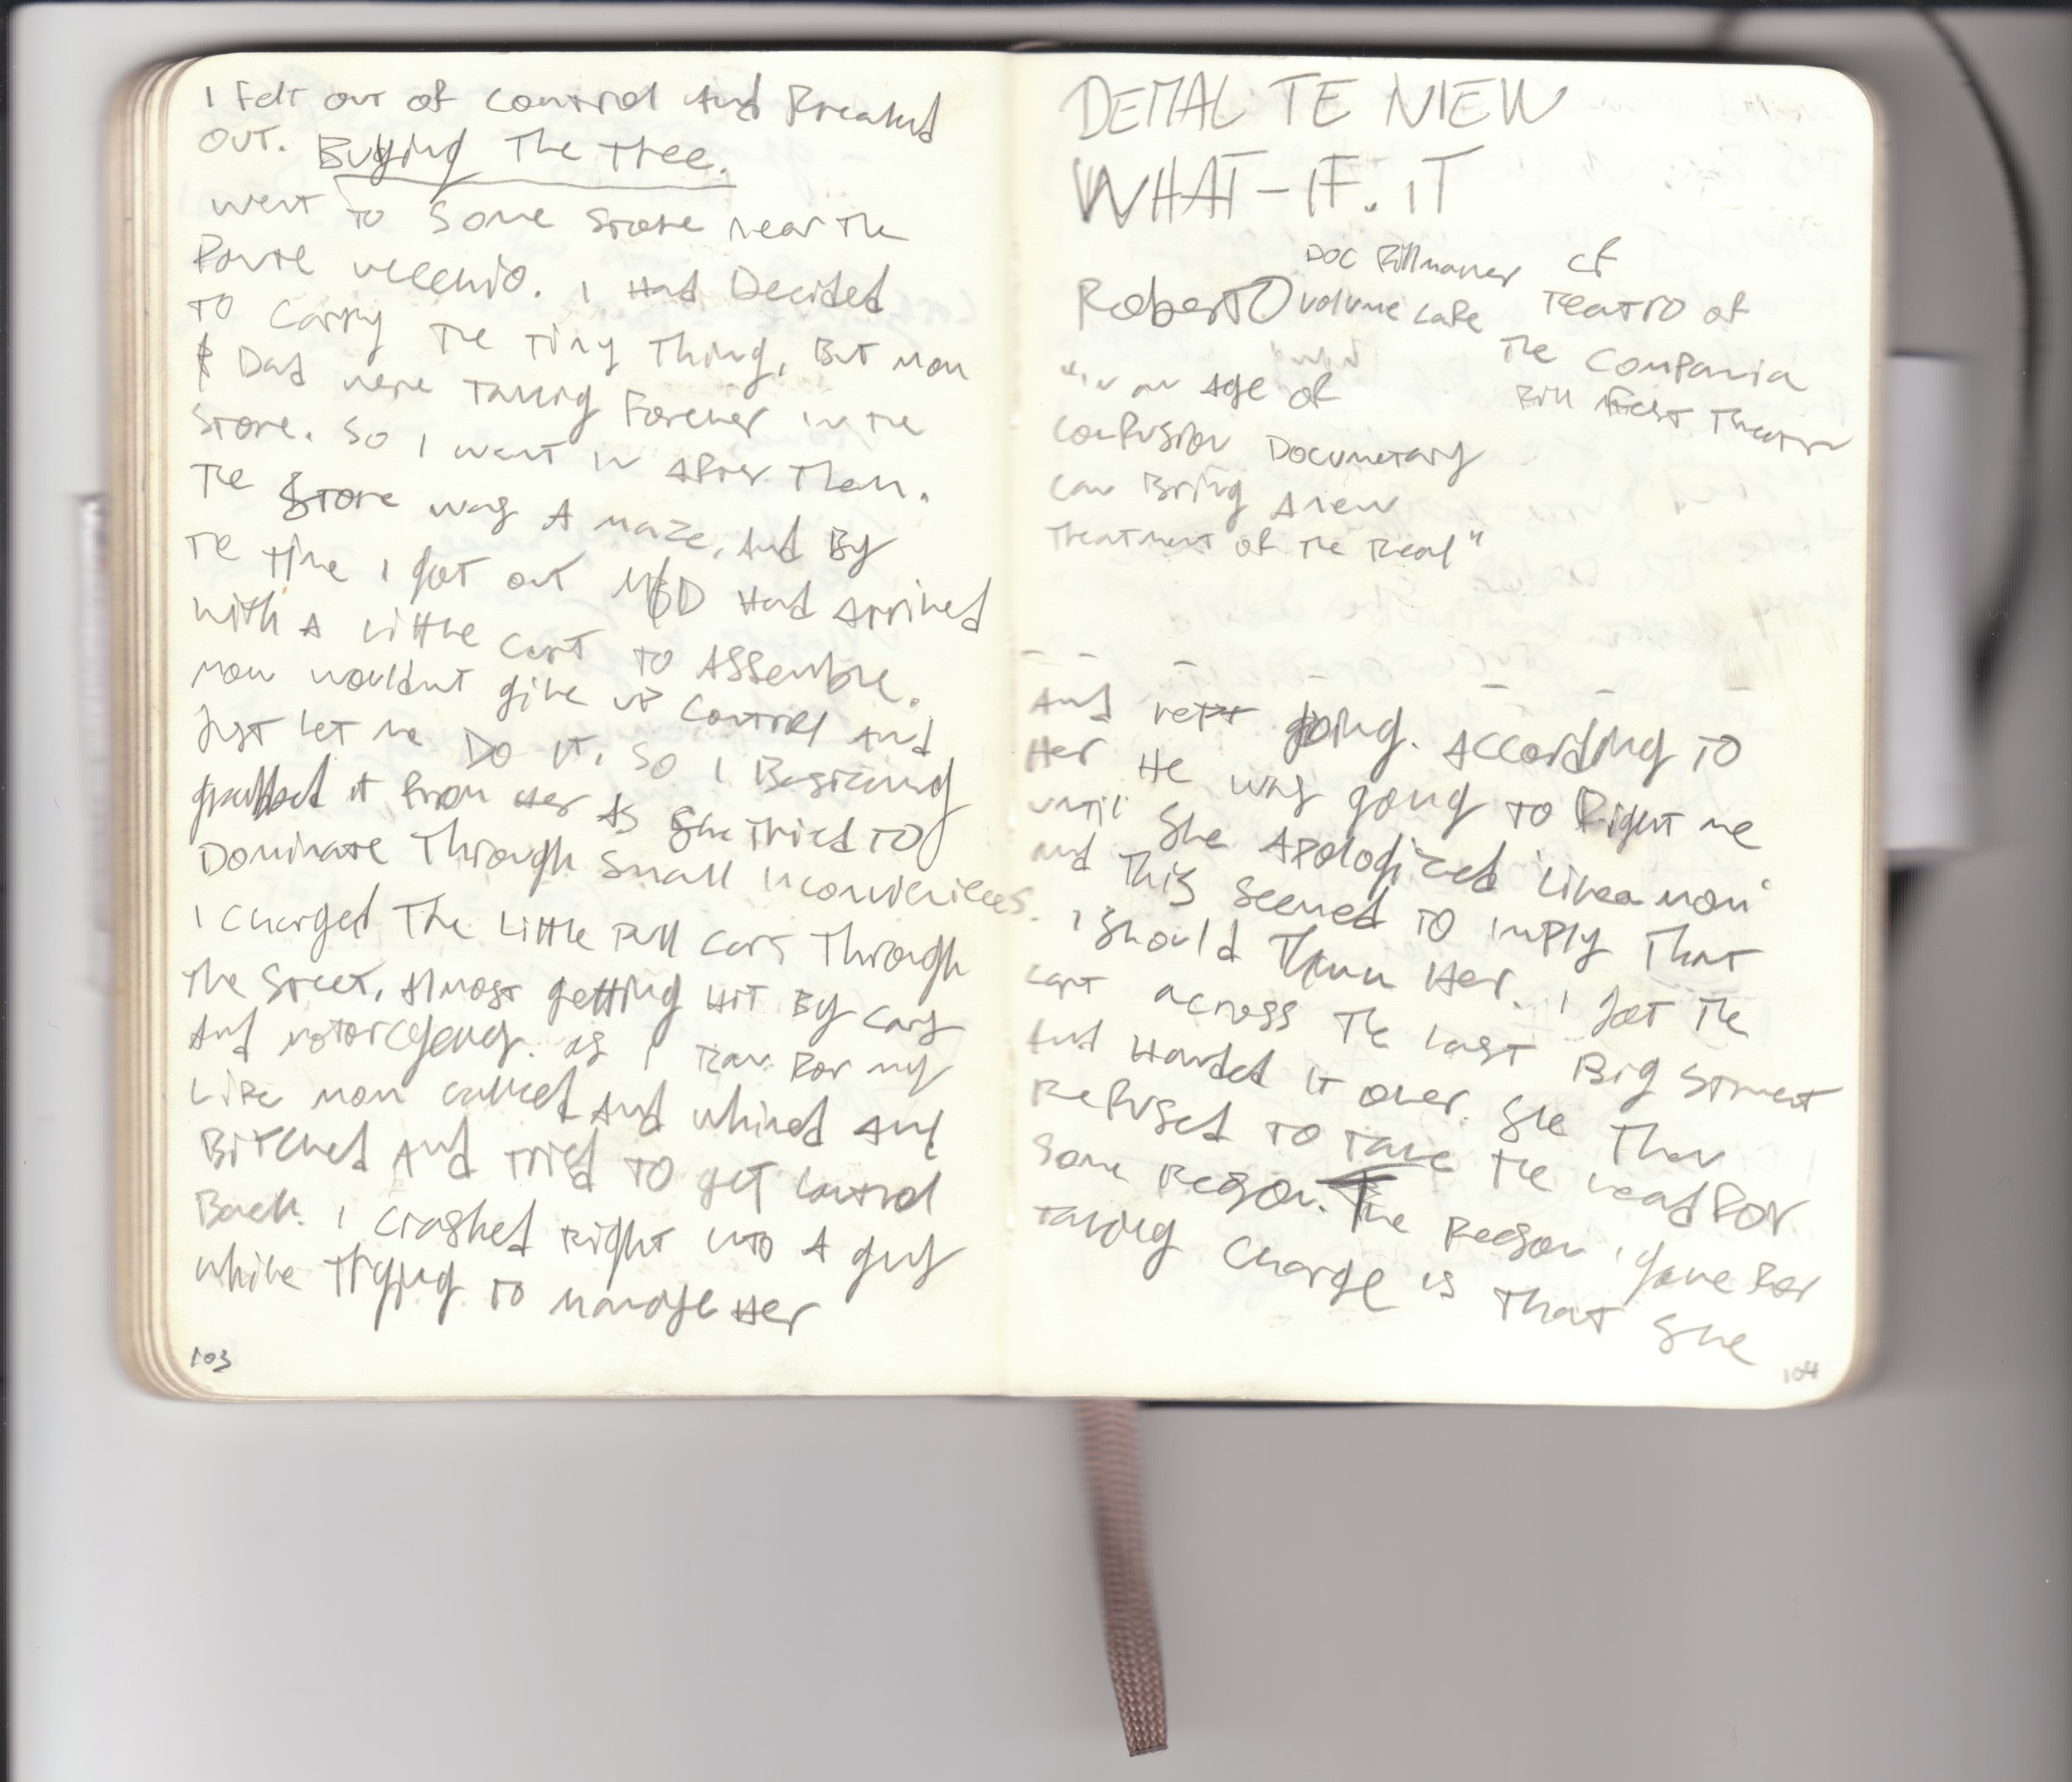 I Felt out of Control And Freaked
out. Buying The Tree.
went to Some Store near The
Ponte vecchio. I Had Decided
To Carry The Tiny Thing, But Mom
& Dad were Taking Forever in the
Store. So I went in After Them.
The Store was A maze, And By
The time I got out M&D Had Arrived
with A Little Cart To Assemble.
Mom wouldnt give up Control And
Just Let me Do it. So I Basically
grabbed it from Her As She Tried To
Dominate Through Small Inconveniences.
I Charged The Little Pull Cart Through
The Street, Almost getting Hit By Cars
And motorcycles. as I Ran For my
Life mom called And whined And
Bitched And Tried To get Control
Back. I crashed Right into A guy
while Trying To manage Her
103
DEMAL TE NIEW
WHAT-IF.IT
Doc Filmmaker cf
RobertO Volume Cafe Teatro of
The Compania
"in an Age of
Confusion Documetary
can Bring A new
Treatment of The Real"
And kept going. According To
Her He was going To Fight me
until She Apologized 'Like a mom'
and This Seemed To imply That
I Should Thank Her. I Got The
Cart across The Last Big Street
And Handed it over. She Then
Refused To Take The Lead For
Some Reason. The Reason I gave For
Taking Charge is That She
104